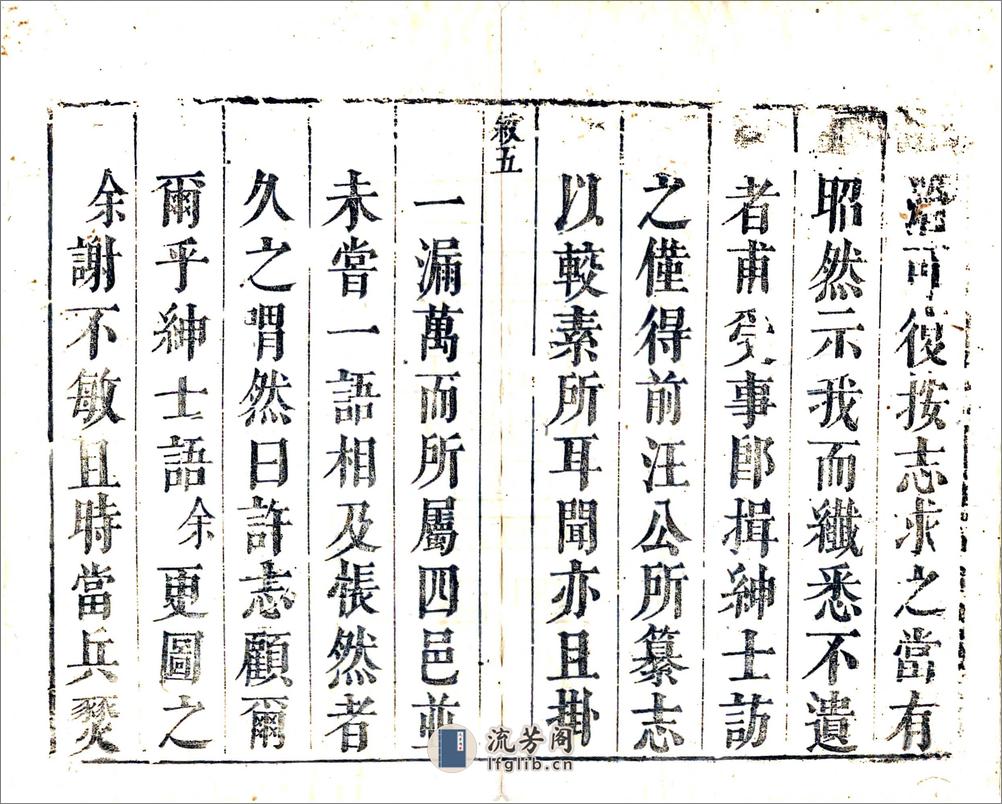 可復按志求之當有
昭然示我而纖悉不遺
者甫受事卽揖紳士訪
之僅得前汪公所纂志
以較素所耳聞亦且掛
敘五
一漏萬而所屬四邑並
未嘗一語相及悵然者
久之喟然曰許志顧爾
爾乎紳士語余更圖之
余謝不敏且時當兵燹
流芳阁
lfglib.cn